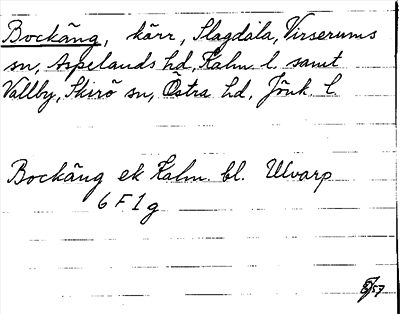 Bockäng, kärr, Slagdala, Virserums
sn, Aspelands hd, Kalm. l. samt
Vallby, Skirö sn, Östra hd, Jönk. l
Bockäng ek Kalm. bl. Ulvarp
6 F 1 g